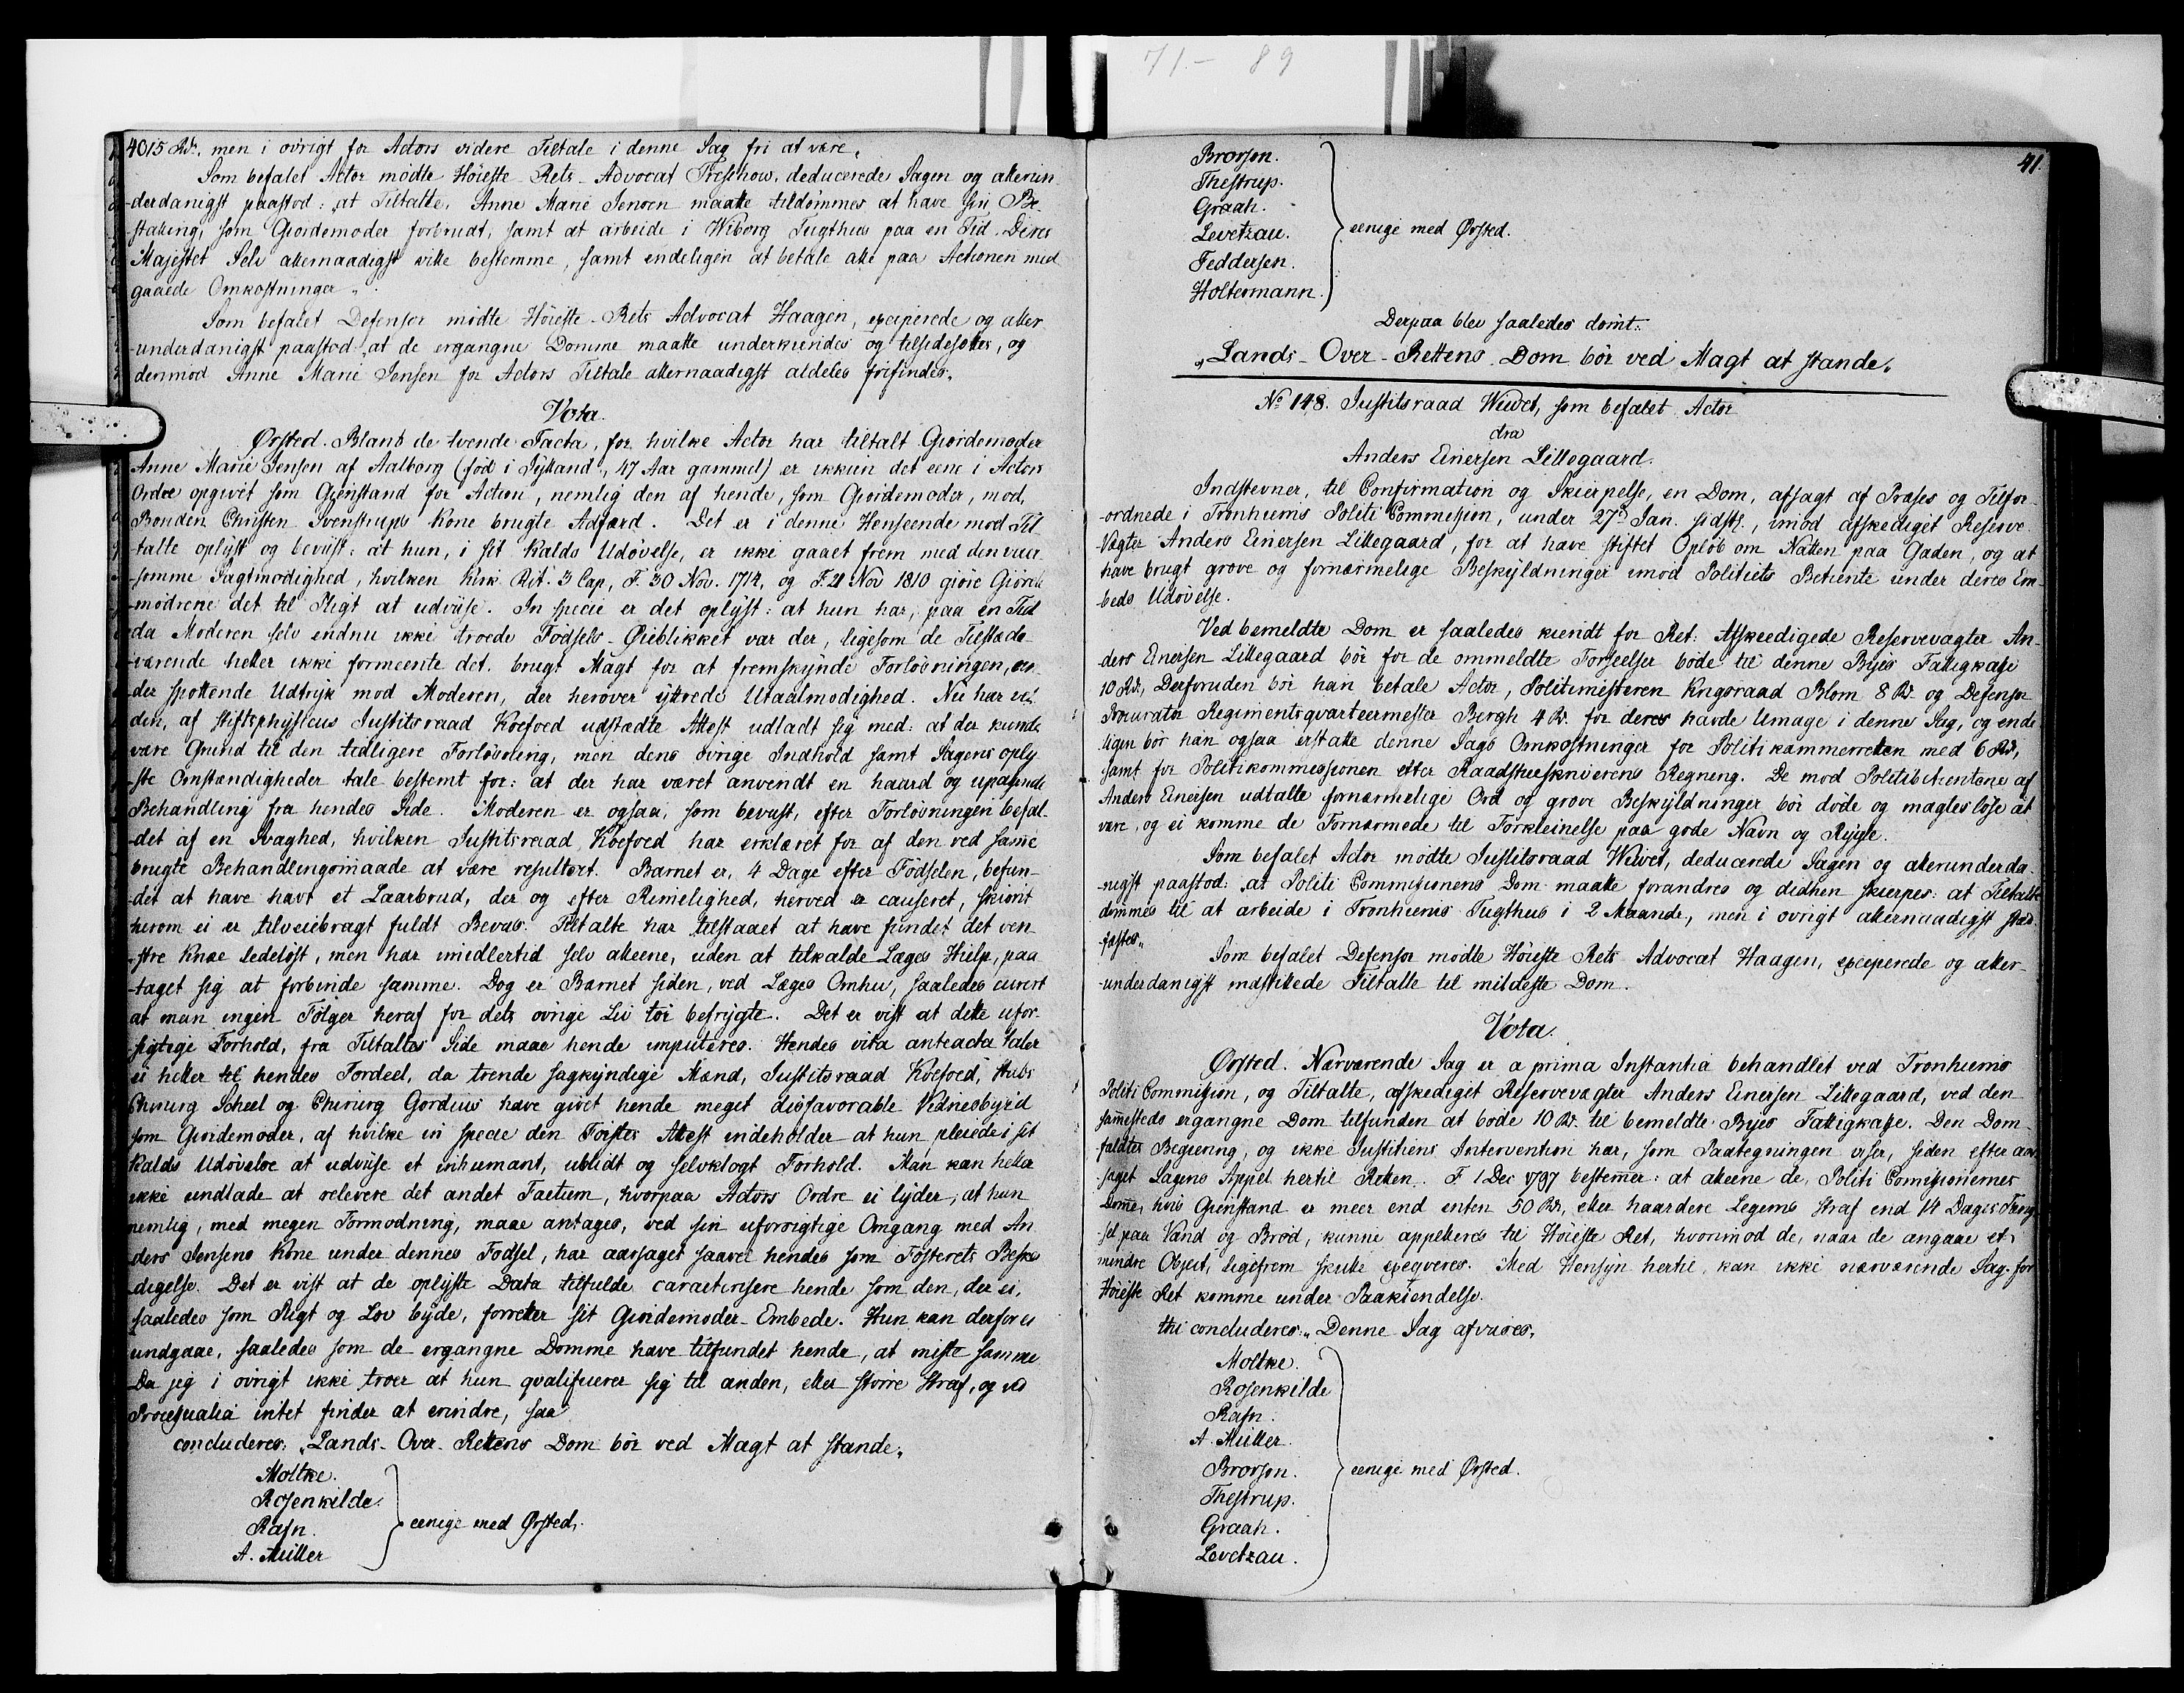 71.- 89
4015 Rd. men i övrigt for Actors videre Tiltale i denne Sag fri at være„
Som befalet Actor mödte Höieste-Rets-Advocat Treschow, deducerede Sagen og allerun-
derdanigst paastod: „at Tiltalte, Anne Marie Jensen maatte tildömmes at have sin Be-
stalling, som Giordemoder forbrudt, samt at arbeide i Wiborg Tugthus paa en Tid, Deres
Majestet Selv allernaadigst ville bestemme, samt endeligen at betale alle paa Actionen med
gaaede Omkostninger„.
Som befalet Defensor mödte Höieste-Rets Advocat Haagen, exciperede og aller
-underdanigst paastod: „at de ergangne Domme maatte underkiendes og tilsidesættes, og
derimod Anne Marie Jensen for Actors Tiltale allernaadigst aldeles frifindes„
Vota.
Ørsted. Bland de tvende Facta, for hvilke Actor har tiltalt Giordemoder
Anne Marie Jensen af Aalborg (föd i Sylland, 47 Aar gammel) er ikkun det ene i Actors
Ordre opgivet som Gienstand for Action, nemlig den af hende, som Giordemoder, mod
Bonden Christen Svenstrups Kone brugte Adfærd. Det er i denne Henseende mod Til-
talte oplyst og beviist: at hun, i sit Kalds Udövelse, er ikke gaaet frem med den vaer
somme Sagtmodighed, hvilken Kirk. Rit. 3 Cap, F. 30 Nov. 1714, og F. 21 Nov 1810 giöre Giorde
-mödrene det til Pligt at udviise. In specie er det oplyst: at hun har, paa en Tid
da Moderen selv endnu ikke troede Födsels-Öieblikket var der, ligesom de Tilstæde-
-værende heller ikke formeente det. brugt Magt for at fremskynde Forlösningen, un-
der spottende Udtryk mod Moderen, der heröver yttrede Utaalmodighed. Nu har vel
den, af Stiftsphysicus Justitsraad Koefoed udstædte Attest udladt sig med: at der kunde
være Grund til den tidligere Forlösning, men dens övrige Indhold samt Sagens oply
-ste Omstændigheder tale bestemt for: at der har været anvendt en haard og upassende
Behandling fra hendes Side. Moderen er ogsaa, som beviist, efter Forlösningen befal-
-det af en Svaghed, hvilken Justitsraad Koefoed har erklæret for af den ved samme
brugte Behandlingsmaade at være resulteret. Barnet er, 4 Dage efter Födselen, befun-
-det at have havt et Laarbrud, der og efter Rimelighed, herved er causeret, skiönt
herom ei er tilveiebragt fuldt Beviis. Tiltalte har tilstaaet at have fundet det ven-
-stre Knæ ledelöst, men har imidlertid selv alleene, uden at tilkalde Læges Hielp, paa
-taget sig at forbinde samme. Dog er Barnet siden, ved Læges Omhu, saaledes cureret
at man ingen Fölger heraf for dets övrige Liv tör befrygte. Det er vist at dette ufor-
sigtige Forhold, fra Tiltaltes Side maae hende imputeres. Hendes vita anteacta taler
ei heller til hendes Fordeel, da trende sagkyndige Mænd, Justitsraad Koefoed, Stabs
Chirurg Scheel og Chirurg Gordius have givet hende meget disfavorable Vidnesbyrd
som Giordemoder, af hvilke in specie den Förstes Attest indeholder at hun pleiede i sit
Kalds Udövelse at udviise et inhumant, ublidt og selvklogt Forhold. Man kan heller
ikke undlade at relevere det andet Factum, hvorpaa Actors Ordre ei lyder, at hun
nemlig, med megen Formodning, maae antages, ved sin uforsigtige Omgang med An
ders Jensens Kone under dennes Födsel, har aarsaget saavel hendes som Fosterets Beska
digelse. Det er vist at de oplyste Data tilfulde caracterisere hende som den, der ei,
saaledes som Pligt og Lov byde, forretter sit Giordemoder-Embede. Hun kan derfor ei
undgaae, saaledes som de ergangne Domme have tilfundet hende, at miste samme
Da jeg i övrigt ikke troer at hun qvalificerer sig til anden, eller större Straf, og ved
Processualia intet finder at erindre, saa
concluderes: „Lands-Over-Rettens Dom bör ved Magt at stande„
Moltke.
Rosenkilde.
Rafn.
A. Müller
eenige med Ørsted.
41.
Brorson.
Thestrup.
Graah.
Levetzau.
Feddersen.
Holtermann.
eenige med Ørsted.
Derpaa blev saaledes dömt:
„Lands-Over-Rettens Dom bör ved Magt at stande„
No 148. Justitsraad Wivet, som befalet Actor
ctra
Anders Einersen Lillegaard.
Indstevner, til Confirmation og Skierpelse, en Dom, afsagt af Præses og Tilfor-
-ordnede i Tronhiems Politi Commission, under 27de Jan. sidstl., imod afskediget Reserve
Vægter Anders Einersen Lillegaard, for at have stiftet Oplöb om Natten paa Gaden, og at
have brugt grove og fornærmelige Beskyldninger imod Politiets Betiente under deres Em-
beds Udövelse.
Ved bemeldte Dom er saaledes kiendt for Ret: Afskeedigede Reservevægter An-
ders Einersen Lillegaard bör for de ommeldte Forseelser böde til denne Byes Fattigkasse
10 Rd., Desforuden bör han betale Actor, Politimesteren Krigsraad Blom 8 Rd. og Defensor
Procurator Regimentsqvarteermester Bergh 4 Rd. for deres havde Umage i denne Sag, og ende
ligen bör han ogsaa erstatte denne Sags Omkostninger for Politikammerretten med 6 Rd.,
samt for Politikommissionen efter Raadstueskriverens Regning. De mod Politibetientene af
Anders Einersen udtalte fornærmelige Ord og grove Beskyldninger bör döde og magteslöse at
være, og ei komme de Fornærmede til Forkleinelse paa gode Navn og Rygte.
Som befalet Actor mödte Justitsraad Wivet, deducerede Sagen og allerunderda-
-nigst paastod: „at Politi Commissionens Dom maatte forandres og didhen skierpes: at Tiltalte
dömmes til at arbeide i Tronhiems Tugthus i 2 Maaneder, men i övrigt allernaadigst stad-
fæstes„
Som befalet Defensor mödte Höieste Rets Advocat Haagen, exciperede og aller-
-underdanigst indstillede Tiltalte til mildeste Dom.
Vota.
Ørsted. Nærværende Sag er a prima Instantia behandlet ved Tronhiems
Politi Commission, og Tiltalte, afskediget Reservevægter Anders Einersen Lillegaard, ved den
sammesteds ergangne Dom tilfunden at böde 10 Rd. til bemeldte Byes Fattigkasse. Den Dom-
fældtes Begiering, og ikke Justitiens Intervention har, som Paategningen viser, siden efter aar-
saget Sagens Appel hertil Retten. F. 1 Dec 1797 bestemmer: at alleene de, Politi Commissionernes
Domme, hvis Gienstand er meer end enten 50 Rd., eller haardere Legems Straf end 14 Dages Fæng-
sel paa Vand og Bröd, kunne appelleres til Höieste Ret, hvorimod de, naar de angaae et
mindre Object, ligefrem skulle exeqveres. Med Hensyn hertil kan ikke nærværende Sag for
Höieste Ret komme under Paakiendelse.
thi concluderes: „Denne Sag afvises„
Moltke.
Rosenkilde
Rafn.
A. Müller.
Brorson.
Thestrup.
Graah.
Levetzau.
eenige med Ørsted.